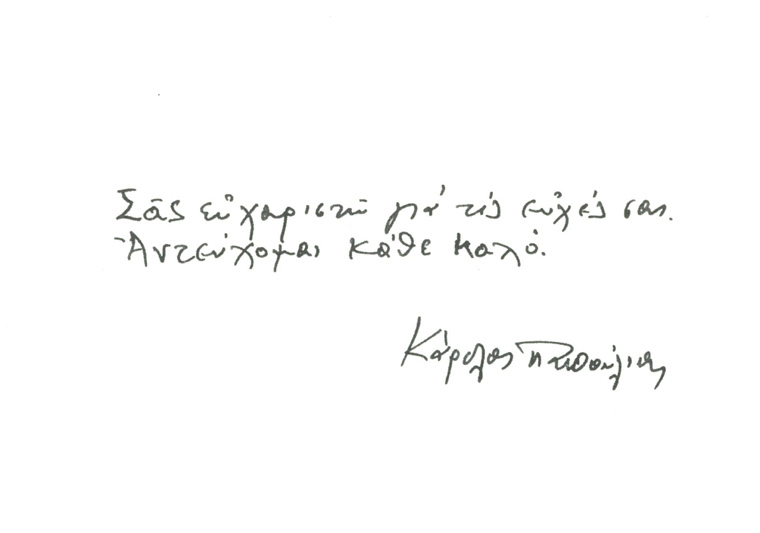 Σᾶς εὐχαριστῶ γιά τίς εὐχές σας.
Ἀντεύχομαι κάθε καλό.
Κάρολος Παπούλιας